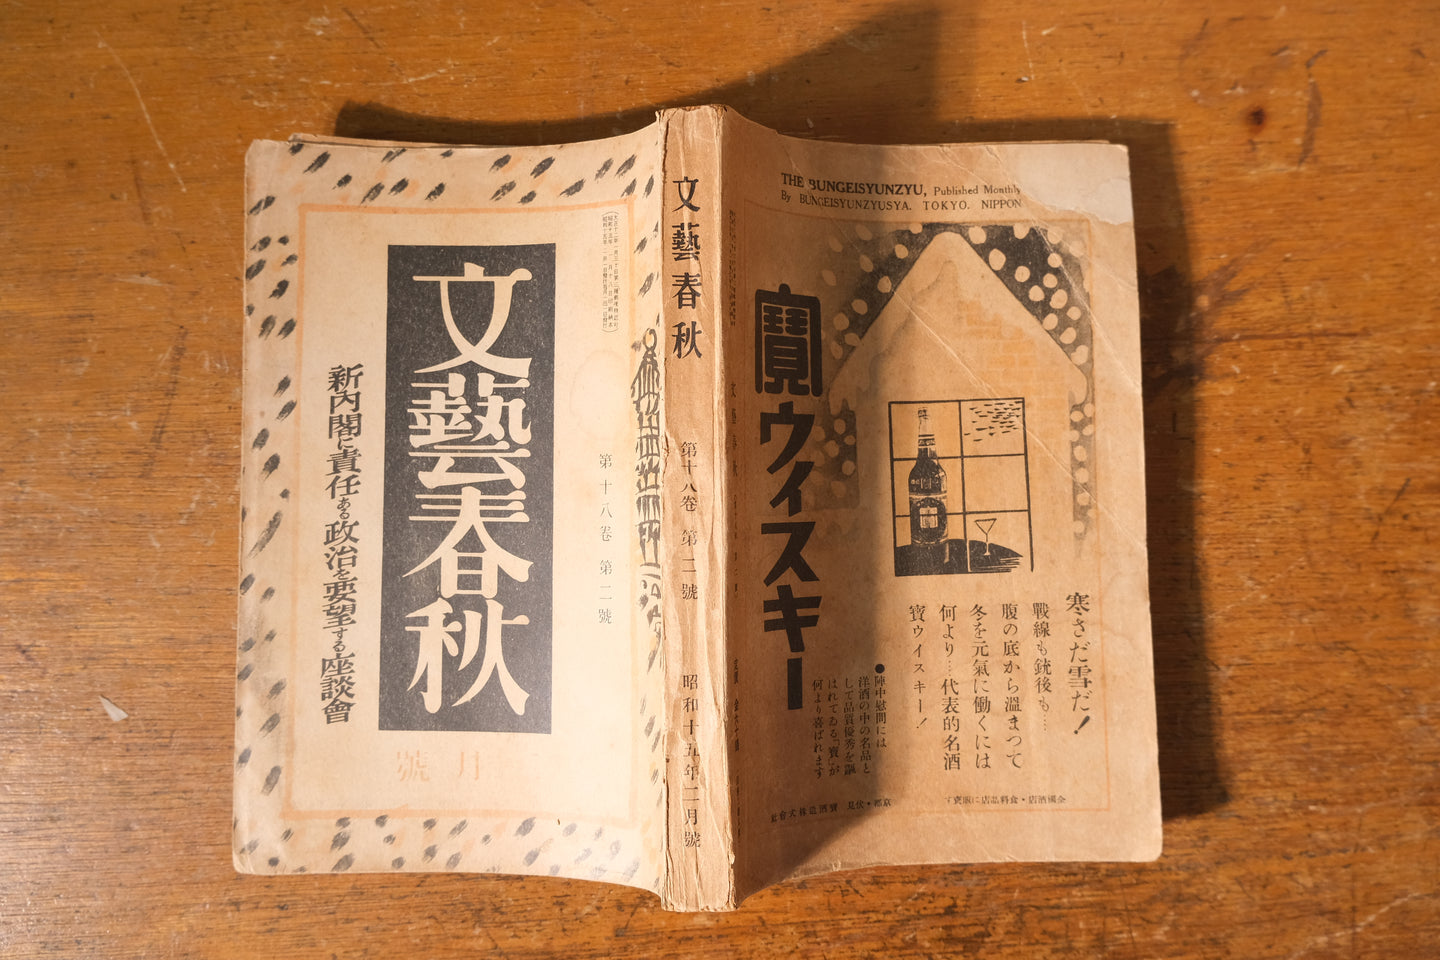 文藝春秋
第十八卷 第二號
新內閣に責任ある政治を要望する座談會
二月號
文藝春秋
第十八卷 第二號
昭和十五年二月號
THE BUNGEISYUNZYU, Published Monthly
By BUNGEISYUNZYUSYA. TOKYO. NIPPON
寶ウイスキー
寒さだ雪だ!
戰線も銃後も…
腹の底から溫まつて
冬を元氣に働くには
何より…代表的名酒
寶ウイスキー!
●陣中慰問には
洋酒の中の名品と
して品質優秀を謳
はれてゐる「寶」が
何より喜ばれます
全國酒店・食料品店に販賣す
京都・伏見 寶酒造株式會社